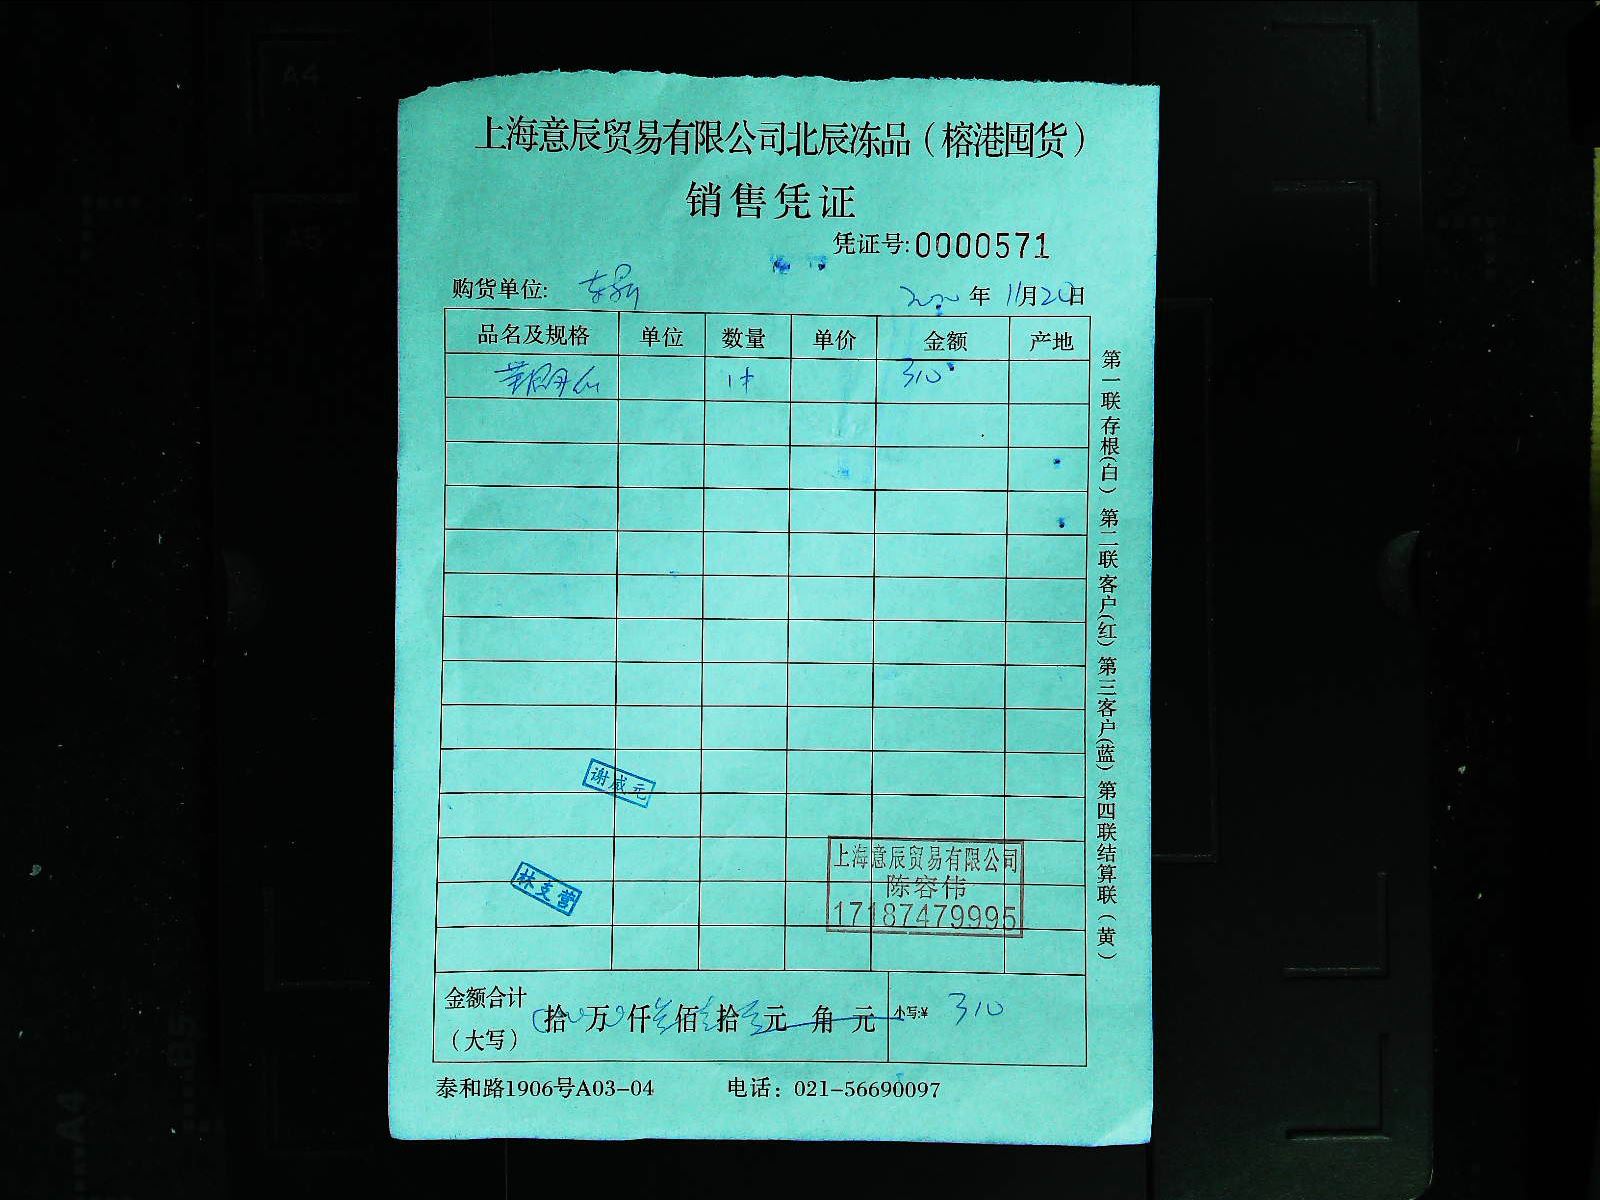 上海意辰贸易有限公司北辰冻品（榕港囤货）
销售凭证
凭证号:0000571
购货单位:
2020年11月20日
品名及规格 单位 数量 单价 金额 产地
1件 310
谢咸元
林支营
上海意辰贸易有限公司
陈容伟
17187479995
金额合计
（大写）
拾 万 仟 叁 佰 壹 拾 元 角 元 小写:¥ 310
泰和路1906号A03-04 电话：021-56690097
第一联存根(白) 第二联客户(红) 第三客户(蓝) 第四联结算联(黄)
A4
A5